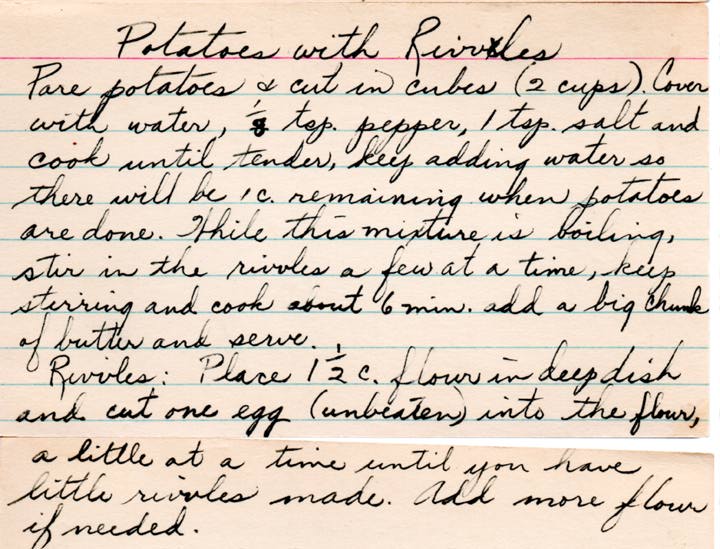 Potatoes with Rivvles
Pare potatoes & cut in cubes (2 cups). Cover
with water, 1/8 tsp. pepper, 1 tsp. salt and
cook until tender, keep adding water so
there will be 1 c. remaining when potatoes
are done. While this mixture is boiling,
stir in the rivvles a few at a time, keep
stirring and cook about 6 min. add a big chunk
of butter and serve.
Rivvles: Place 1 1/2 c. flour in deep dish
and cut one egg (unbeaten) into the flour,
a little at a time until you have
little rivvles made. Add more flour
if needed.